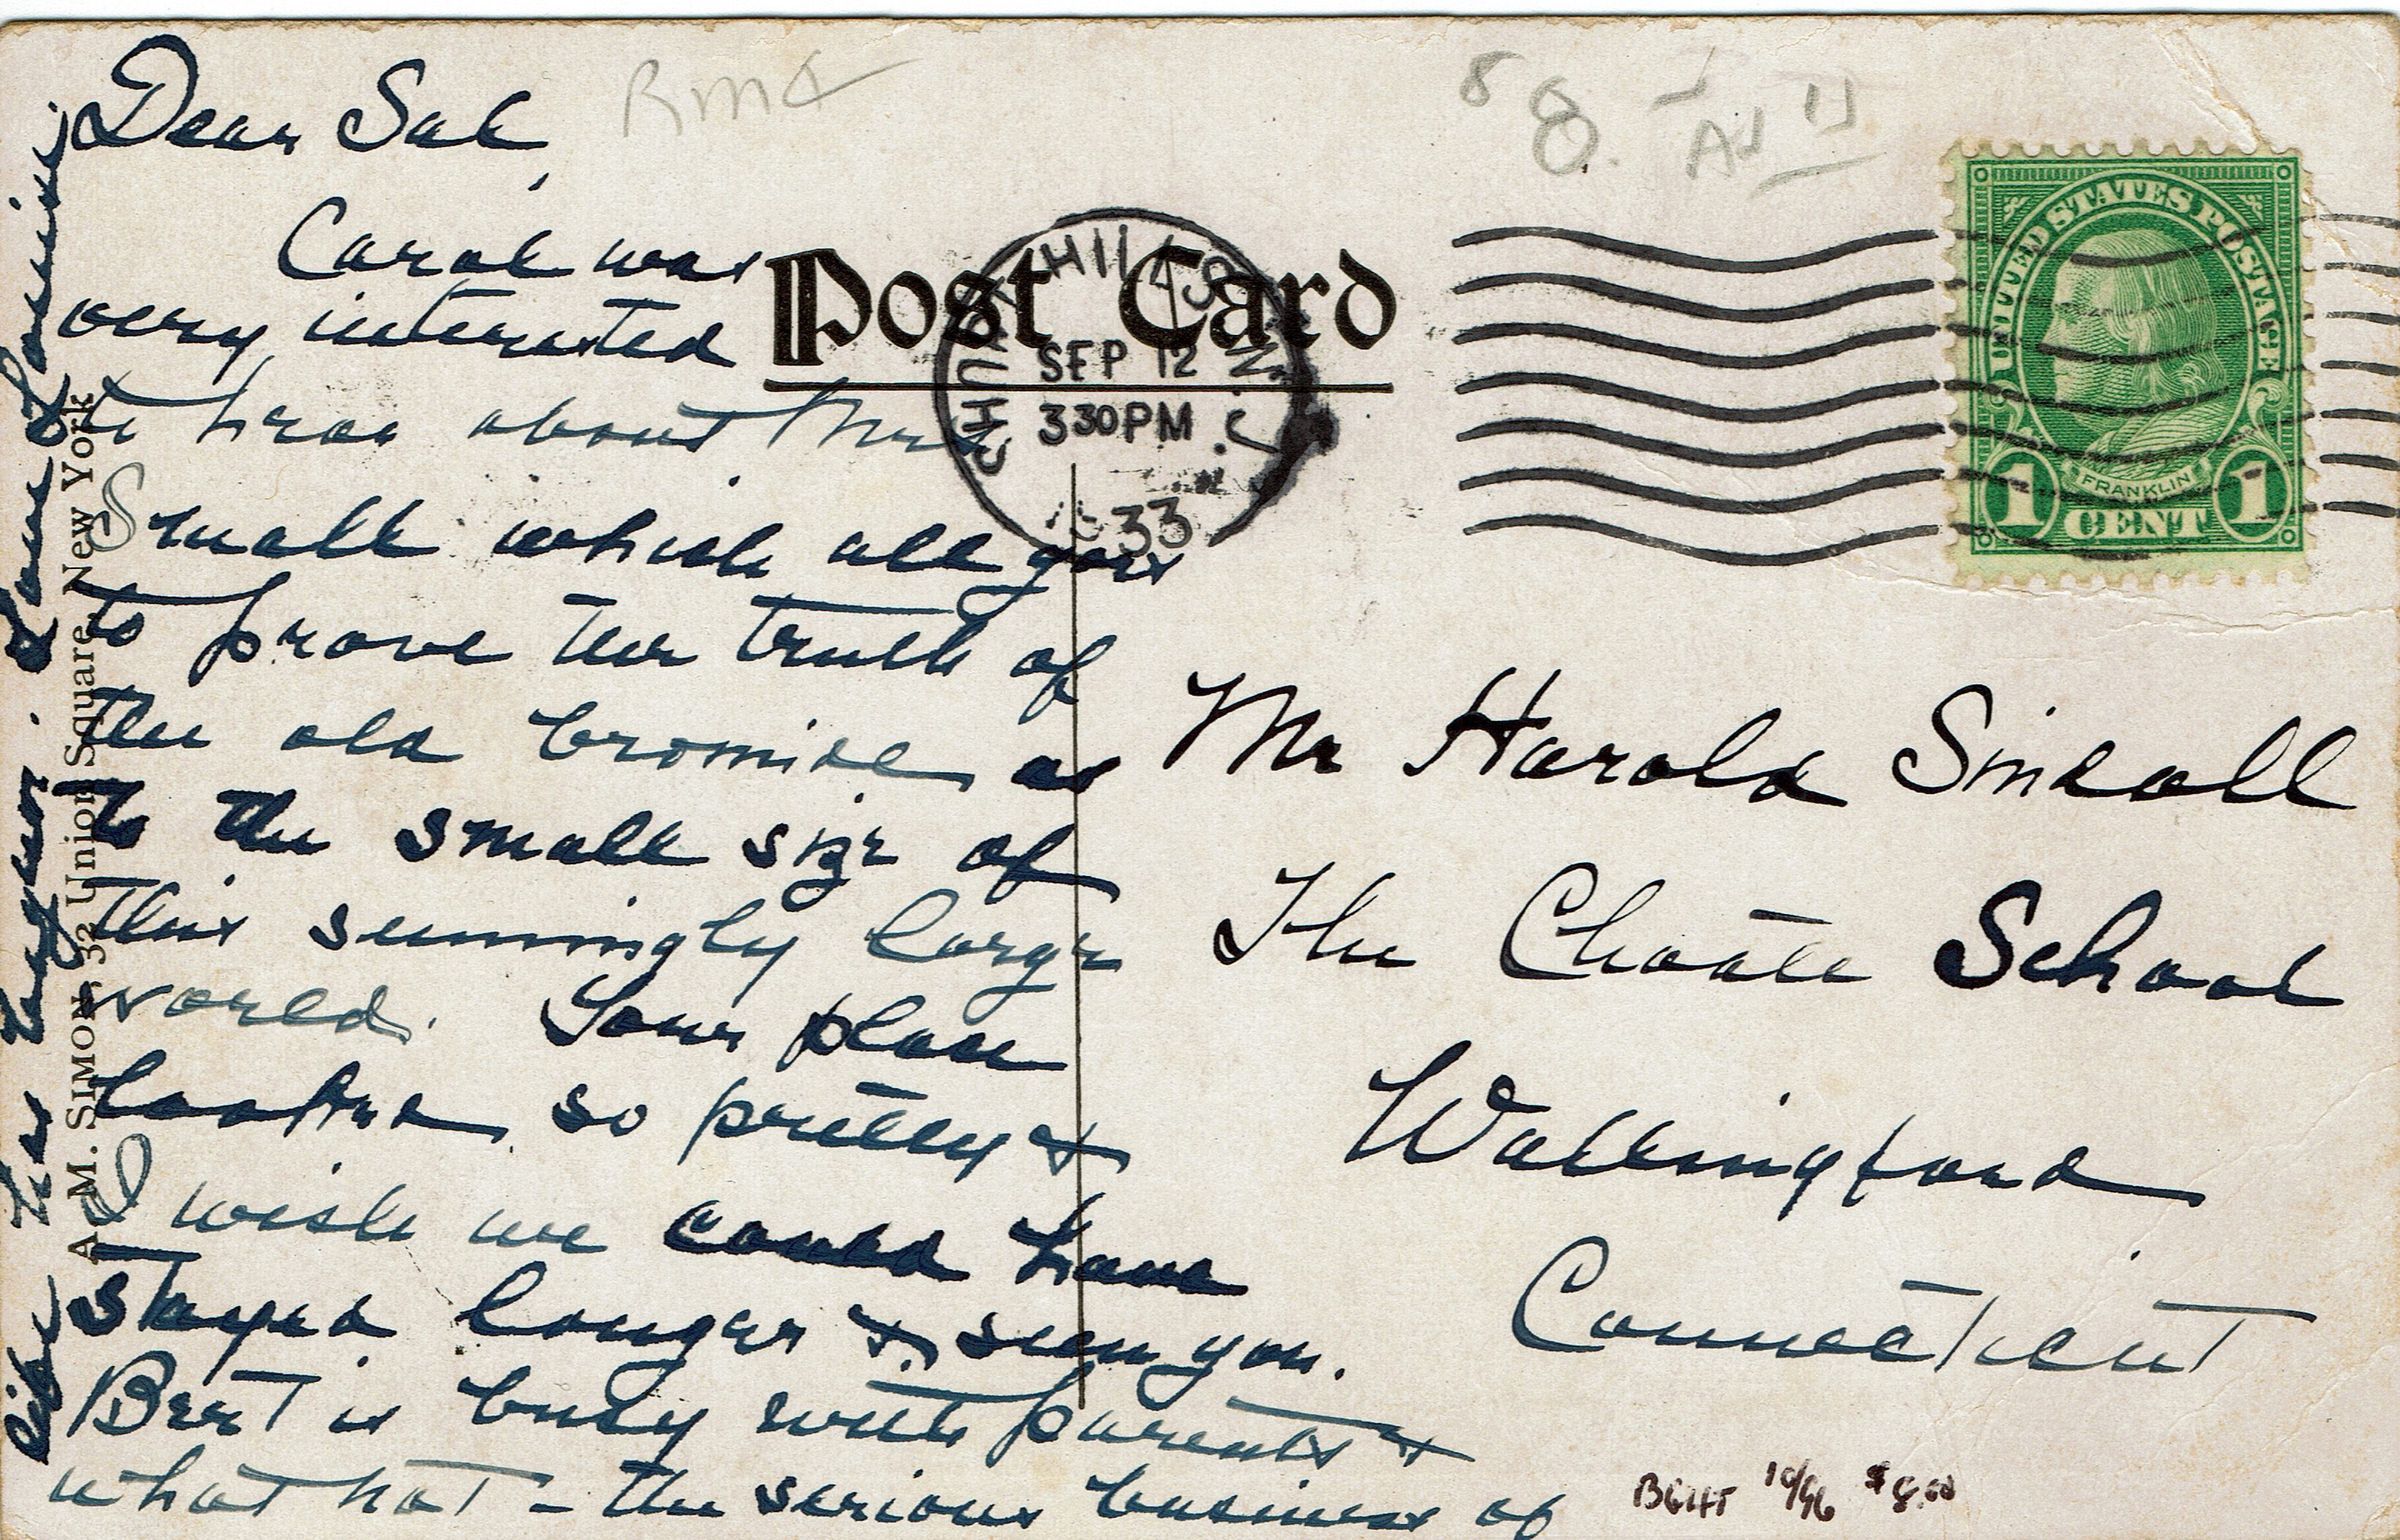 Dear Sal,
Carol was
very interested
to hear about Mrs
Small which all goes
to prove the truth of
the old bromide as
to the small size of
this seemingly large
world. Your place
looked so pretty &
I wish we could have
stayed longer & seen you.
Bert is busy with parents &
what not - the serious business of
life has begun. Love
Post Card
CHURCH HILLS N.J.
SEP 12
3 30 PM
33
UNITED STATES POSTAGE
FRANKLIN
1 CENT 1
Mr Harold Smeall
The Choate School
Wallingford
Connecticut
A. M. SIMON, 32 Union Square, New York
10/96 $8.00